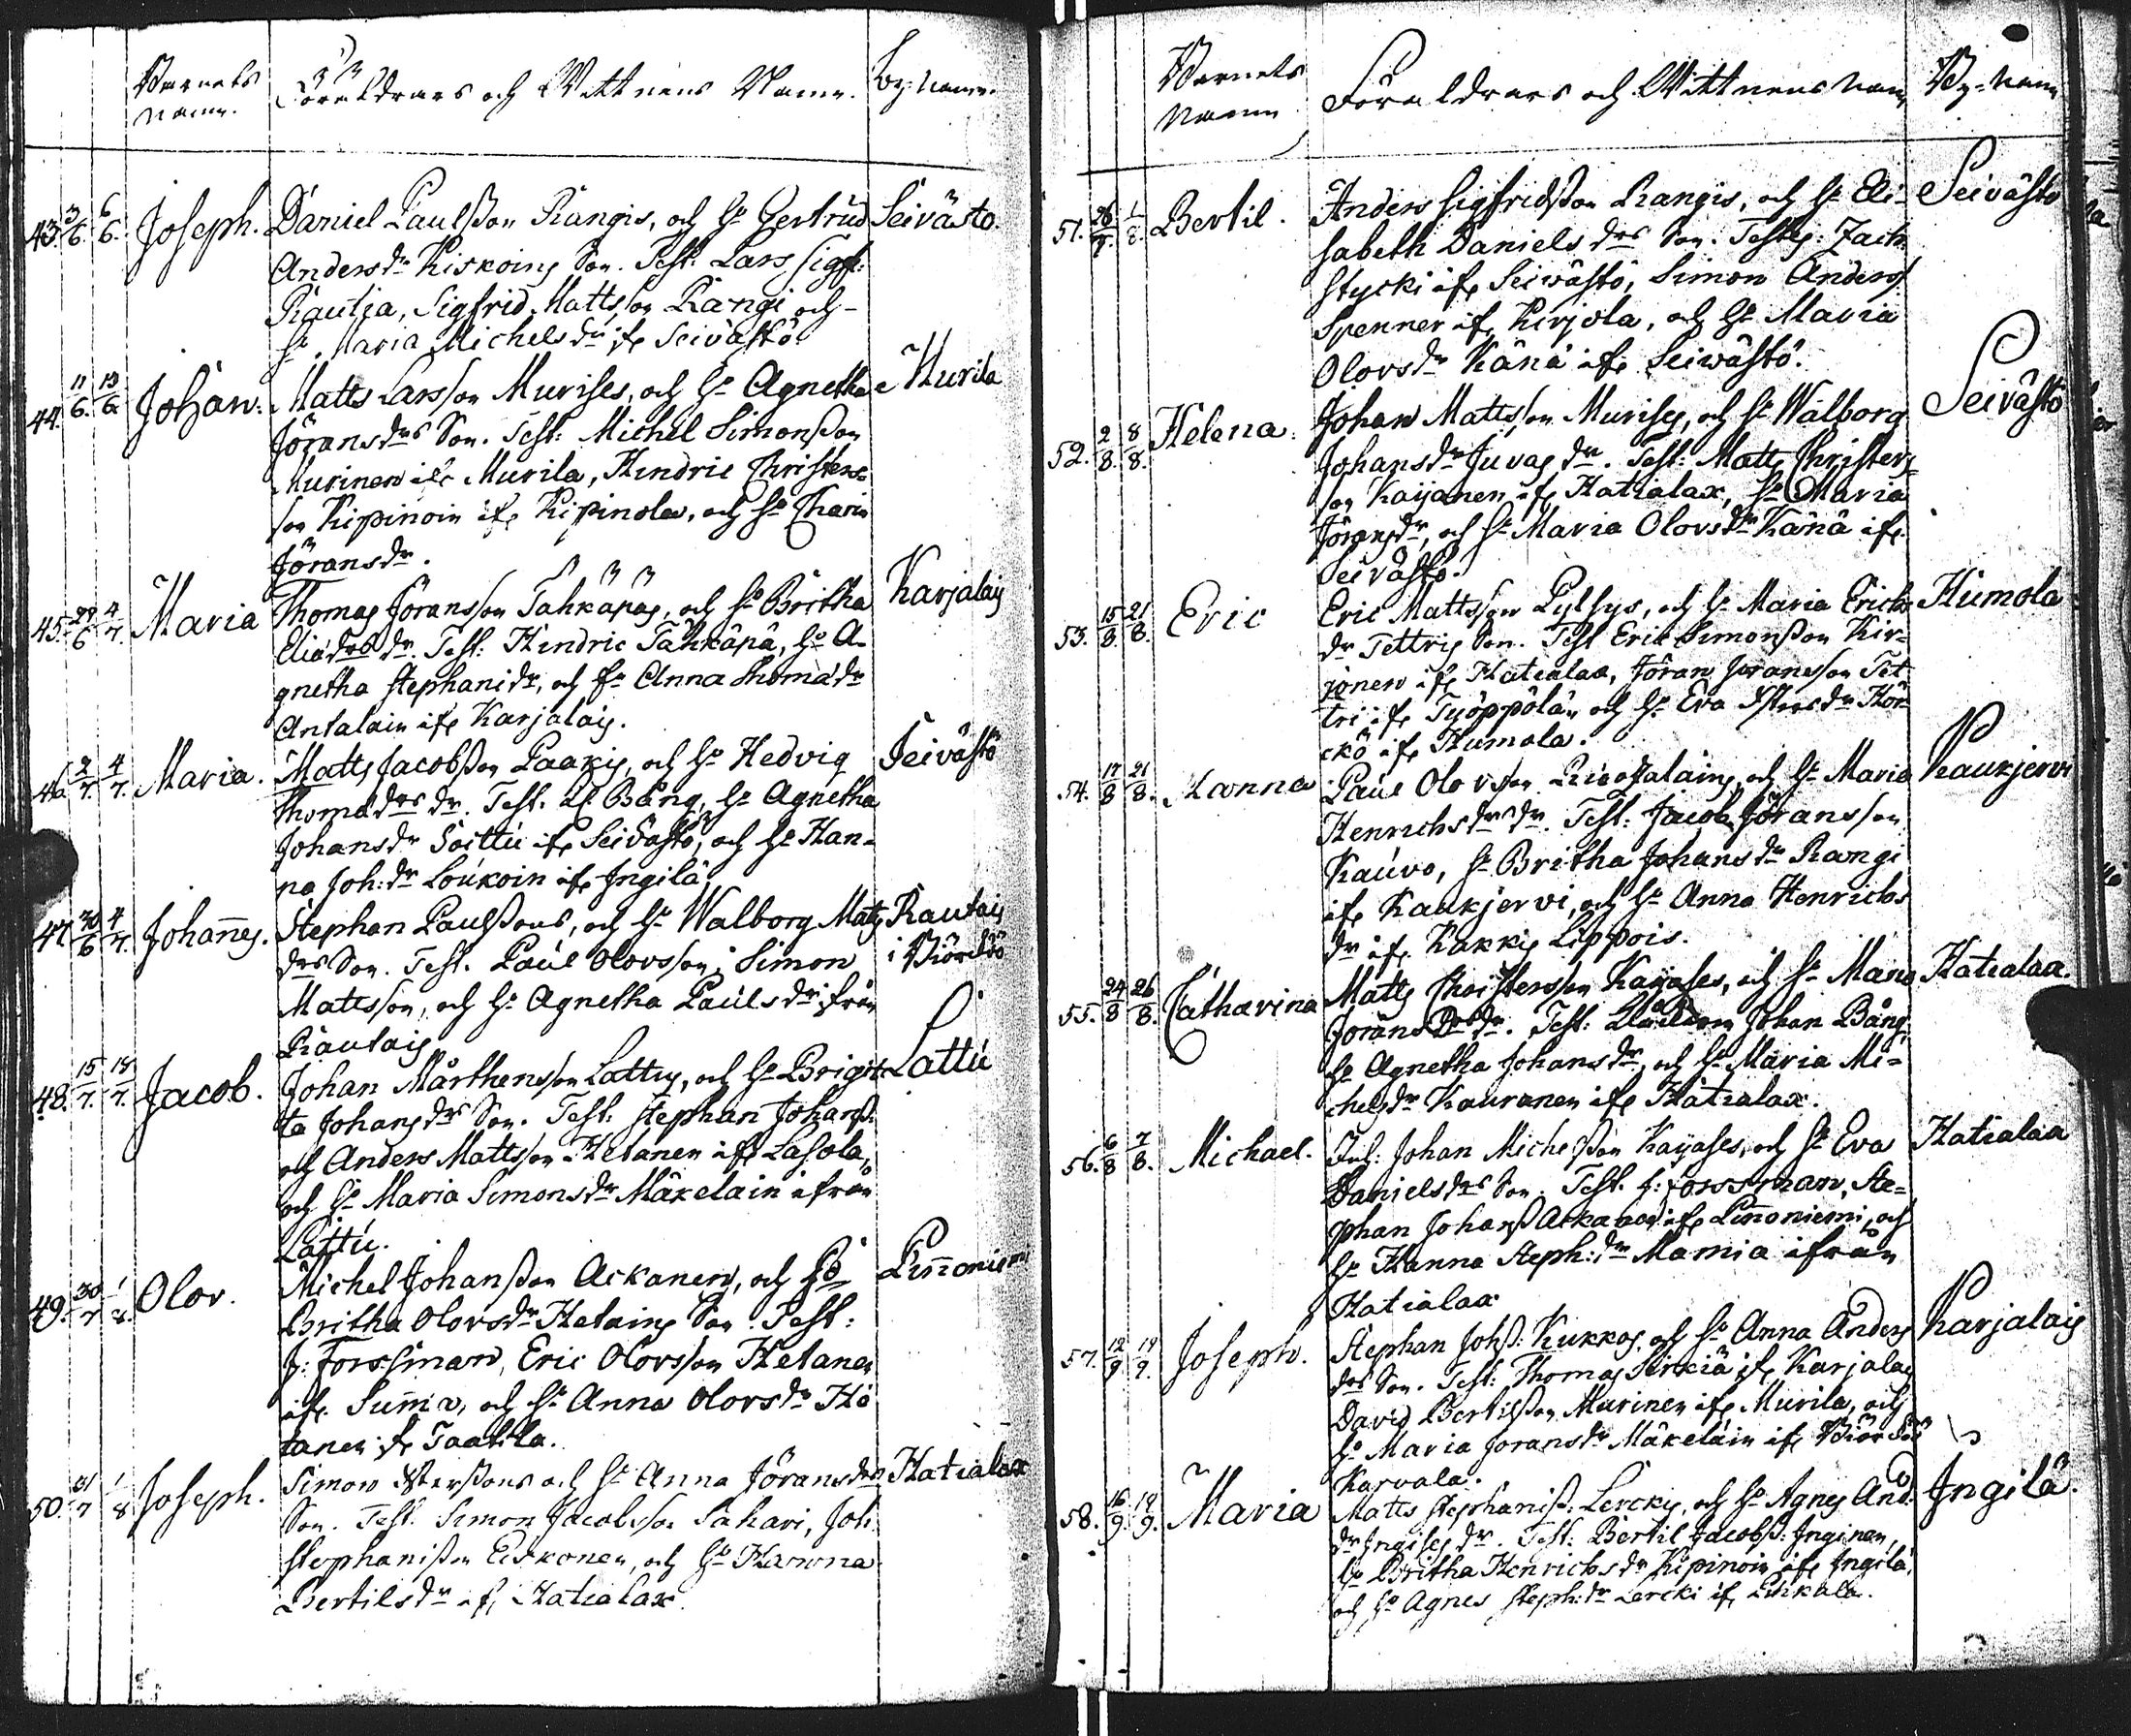 Barnets Namn. Föräldrars och Wittnens Namn. By-Namn.
43. 3/6. 6/6. Joseph. Daniel Paulsson Rangis, och H:o Gertrud Seivästö.
Andersdr Kiskoins Son. Test: Lars Sigf:
Rautia, Sigfrid Mattsson Rangi och
H:o Maria Michelsdr ifr Seivästö.
44. 11/6. 13/6. Johan. Matts Larsson Murises, och H:o Agnetha Murila
Jöransdrs Son. Test: Michel Simonsson
Murinen ifr Murila, Hindric Christers=
son Kipinoin ifr Kipinola, och H:o Charin
Jöransdr.
45. 29/6 4/7. Maria Thomas Jöransson Tahkäpäs, och H:o Britha Karjalais
Eliædrs dr. Test: Hindric Tahkäpä, H:o A-
gnetha Stephanidr, och H:o Anna Thomædr
Antalain ifr Karjalais.
46. 2/7. 4/7. Maria. Matts Jacobsson Paakis, och H:o Hedvig Seivästö
Thomædrs dr. Test: Bång, H:o Agnetha
Johansdr Soittu ifr Seivästö, och H:o Han-
na Joh:dr Loukoin ifr Ingilä.
47. 30/6 4/7. Johannes. Stephan Paulssons, och H:o Walborg Mats Rautais
drs Son. Test. Paul Olovsson, Simon i Biörckö
Mattsson, och H:o Agnetha Paulsdr ifrån
Rautais
48. 15/7. 18/7. Jacob. Johan Mårthensson Lattus, och H:o Brigit- Lattu
ta Johansdrs Son. Test: Stephan Johanss:
och Anders Mattsson Hetanen ifr Lasola,
och H:o Maria Simonsdr Mäkelain ifrån
Lattu.
49. 30/7 1/8. Olov. Michel Johansson Ackanen, och H:o Linnoniemi
Britha Olovsdr Hetains Son. Test:
J: Forssman, Eric Olovsson Hetanen
ifr Summa, och H:o Anna Olovsdr He
tanen ifr Taatila.
50. 31/7 1/8 Joseph. Simon Ysterssons och H:o Anna Jöransdrs Hatialax
Son. Test. Simon Jacobsson Sakari, Joh:
Stephanisson Eskonen, och H:o Hanna
Bertilsdr ifr Hatialax.
Barnets Namn Föräldrars och Wittnens Namn By-Namn
51. 26/7. 1/8. Bertil. Anders Sigfridsson Rangis, och H:o Eli- Seivästö
sabeth Daniels drs Son. Testes: Zach:
Stycki ifr Seivästö, Simon Anders
Spenner ifr Kirjola, och H:o Maria
Olovsdr Känä ifr Seivästö.
52. 2/8. 8/8. Helena. Johan Mattsson Murises, och H:o Walborg Seivästö
Johansdr Juvas dr. Test: Matts Christers=
son Kaijanen ifr Hatialax, H:o Maria
Jöransdr, och H:o Maria Olovsdr Känä ifr
Seivästö.
53. 15/8. 21/8. Eric Eric Mattsson Pylsys, och H:o Maria Erichs Humola
dr Tettris Son. Test Eric Simonsson Kir-
jonen ifr Hatialax, Jöran Jöransson Tet
tri ifr Työppölä, och H:o Eva Ystersdr Hör
ckö ifr Humola.
54. 17/8 21/8. Hanna Paul Olovsson, och H:o Maria Kaukjervi
Henrichsdrs dr. Test: Jacob Jöransson
Kauvo, H:o Britha Johansdr Rangi
ifr Kaukjervi, och H:o Anna Henrichs
dr ifr Kakkis Lippois.
55. 24/8 26/8. Catharina Matts Christersson Kaijases, och H:o Maria Hatialax.
Jöransdrs dr. Test: Johan Bång
H:o Agnetha Johansdr, och H:o Maria Mi-
chelsdr Kauranen ifr Hatialax.
56. 6/8 7/8. Michael. Inh: Johan Michelsson Kaijases, och H:o Eva Hatialax
Danielsdrs Son. Test. J: Forssman, Ste-
phan Johanss Ackanen ifr Linnoniemi, och
H:o Hanna Steph:dr Mamia ifrån
Hatialax
57. 12/9 19/9. Joseph. Stephan Johss: Kukkos, och H:o Anna Anders Karjalais
drs Son. Test: Thomas Sirkiä ifr Karjalais
David Bertilsson Murinen ifr Murila, och
H:o Maria Joransdr Mäkeläin ifr Biörckö
Karvala.
58. 16/9. 19/9. Maria Matts Stephaniss: Lerckis, och H:o Agnes And: Ingilä.
dr Ingises dr. Test: Bertil Jacobss: Inginen,
H:o Britha Henrichsdr Kipinoin ifr Ingilä,
och H:o Agnes Steph:dr Lercki ifr